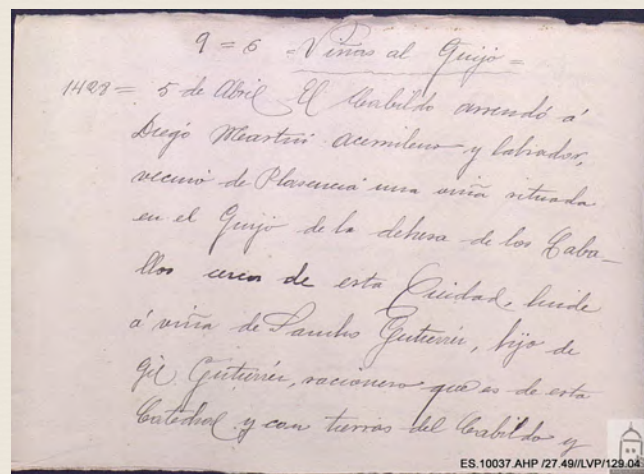 9 = 6 = Viñas al Guijo =
1428 = 5 de Abril El Cabildo arrendó á
Diego Martin acemilero y labrador,
vecino de Plasencia una viña situada
en el Guijo de la dehesa de los Caba-
llos cerca de esta Ciudad, linde
á viña de Sancho Gutierrez, hijo de
Gil Gutierrez, racionero que es de esta
Catedral y con tierras del Cabildo y
ES.10037.AHP /27.49//LVP/129.04